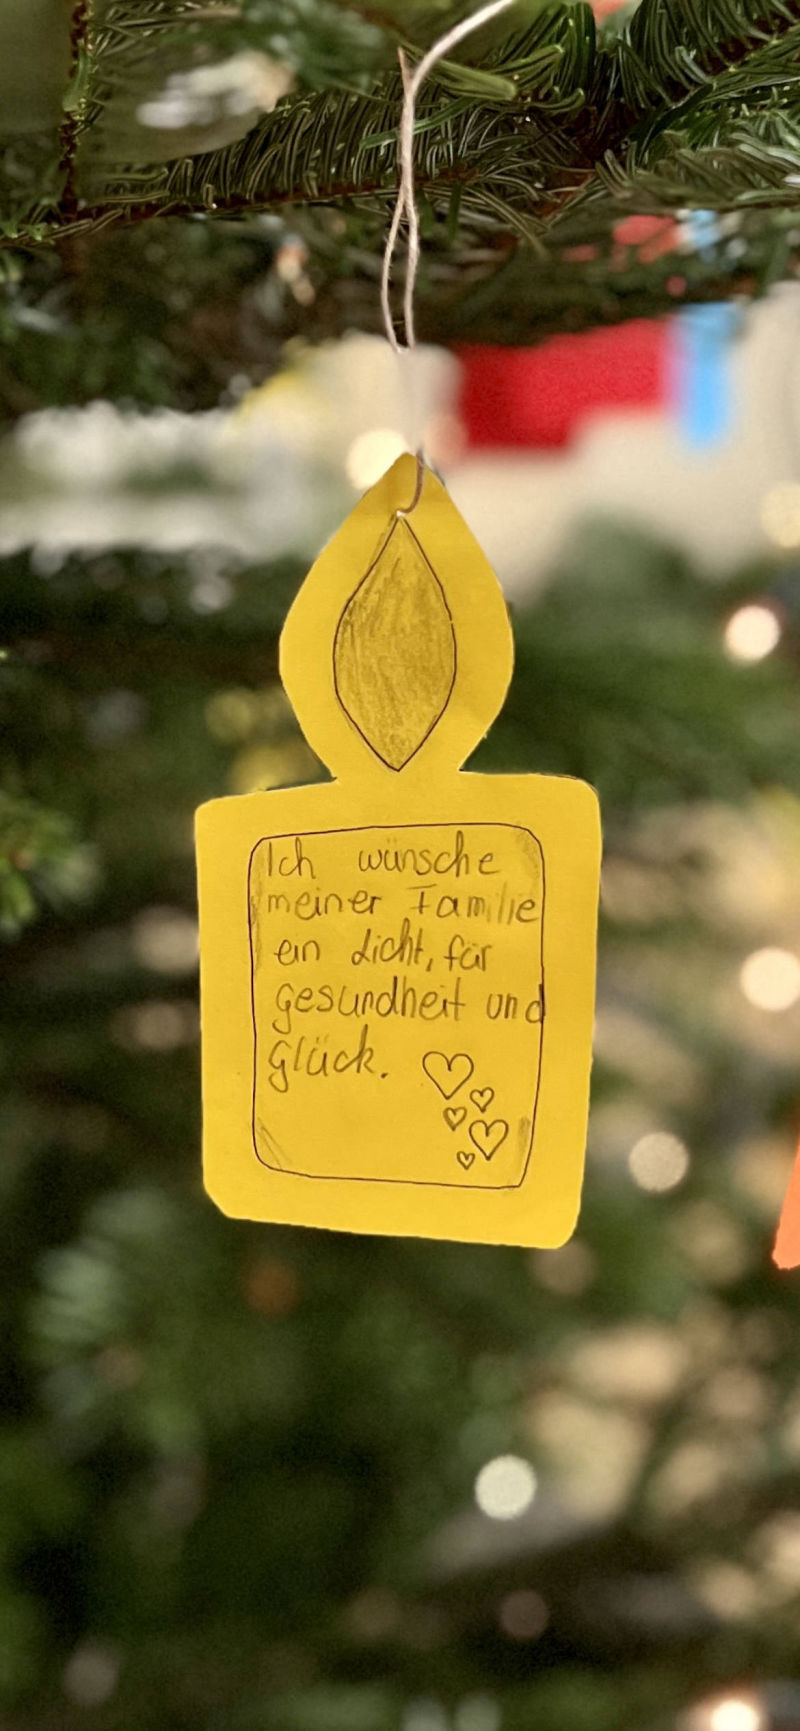 Ich wünsche
meiner Familie
ein Licht, für
gesundheit und
Glück.